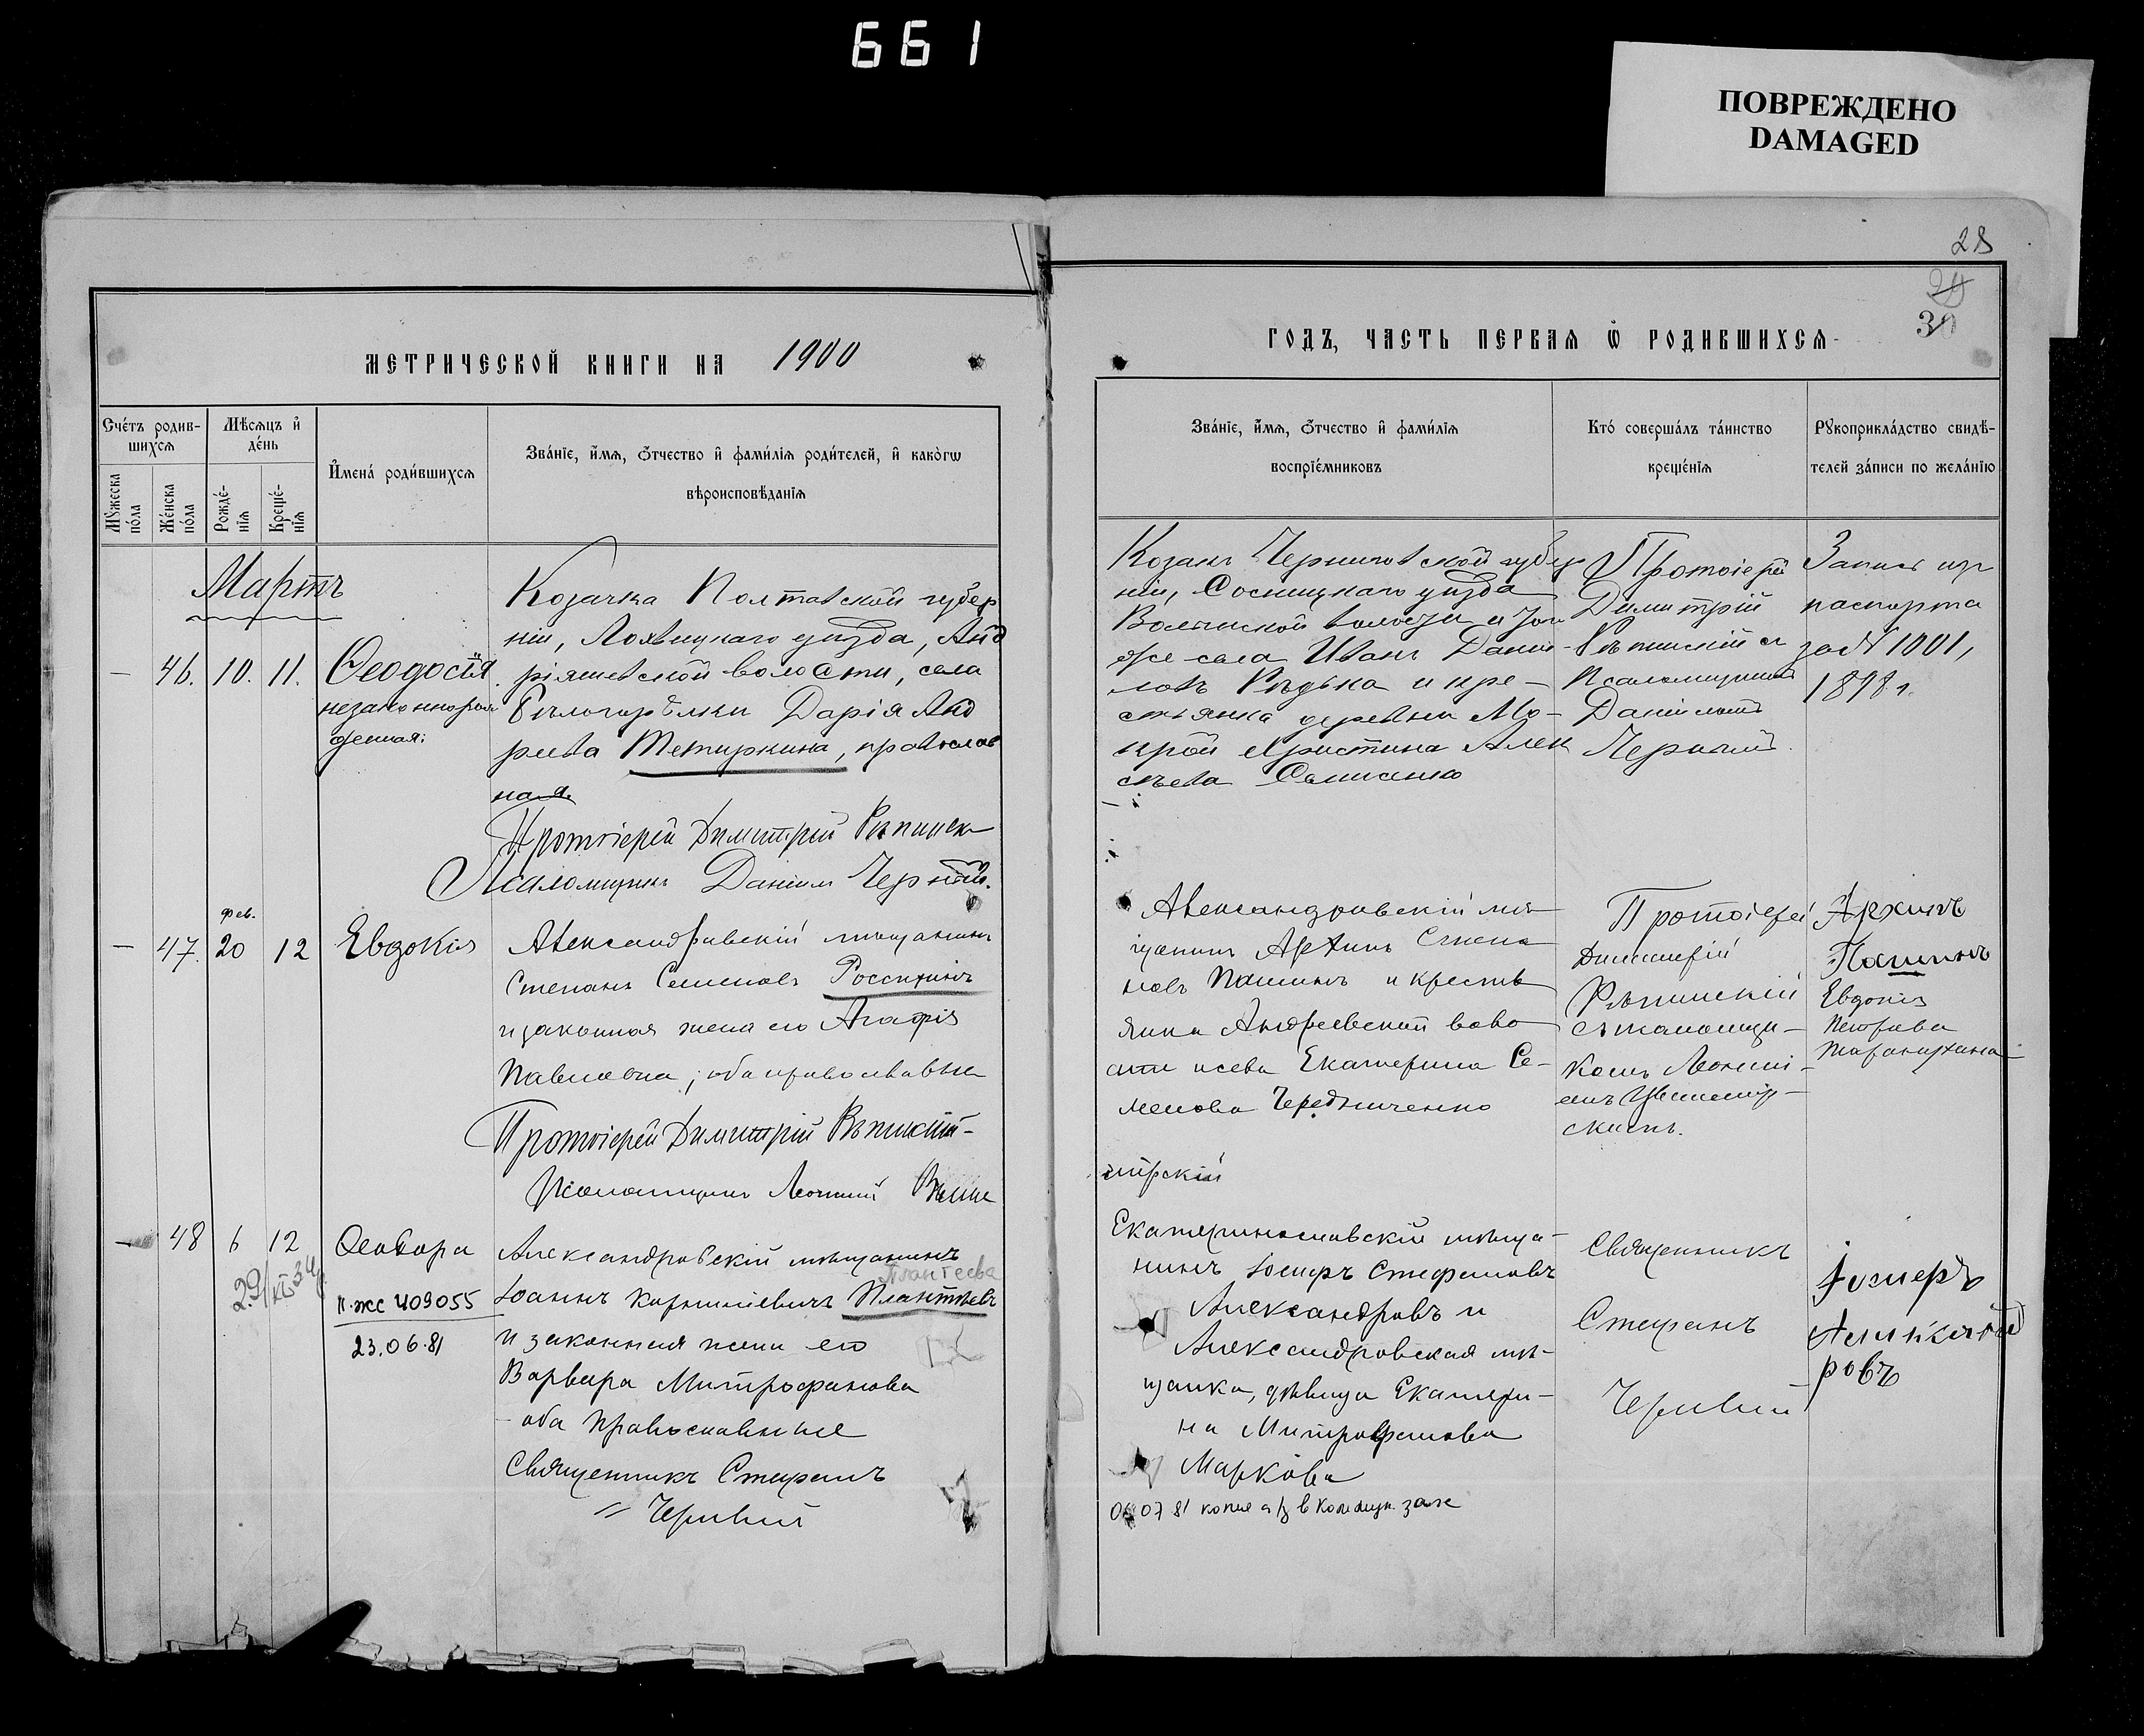 661
ПОВРЕЖДЕНО
DAMAGED
28
29
30
МЕТРИЧЕСКОЙ КНИГИ НА 1900
Счетъ родив-
шихся
Мѣсяцъ и
день
Мужеска
пола
Женска
пола
Рожде-
нія
Креще-
нія
Имена родившихся
Званіе, имя, отчество и фамилія родителей, и какогѡ
вѣроисповѣданія
Мартъ
— 46. 10. 11.
Ѳеодосія
незаконнорож
денная.
Козачка Полтавской губер
ніи, Лохвицкаго уѣзда, Анд
ріяшевской волости, села
Бѣлогорѣлки Дарія Анд
реева Тетиркина, православ
ная.
Протоіерей Димитрій Рѣпинск
Псаломщикъ Даніилъ Черный.
фев.
— 47. 20 12
Евдокія
Александровскій мѣщанинъ
Степанъ Семеновъ Россихинъ
и законная жена его Агафія
Павловна; оба православные
Протоіерей Димитрій Рѣпинскій
Псаломщикъ Леонтій Више
— 48 6 12
Ѳеодора
п. жс 409055
23.06.81
Александровскій мѣщанинъ
Пантеева
Іоаннъ Корниліевичъ Плантѣевъ
и законная жена его
Варвара Митрофанова
оба православные
Священникъ Стефанъ
Черивый
ГОДЪ, ЧАСТЬ ПЕРВАЯ Ѿ РОДИВШИХСЯ
Званіе, имя, отчество и фамилія
воспріемниковъ
Кто совершалъ таинство
крещенія
Рукоприкладство свидѣ-
телей записи по желанію
Козакъ Черниговской губер
ніи, Сосницкаго уѣзда
Волынской волости и той
же села Иванъ Дании-
ловъ Рѣдька и кре-
стьянка деревни Мо-
крой Христина Алек
сѣева Самисенко
Протоіерей
Димитрій
Рѣпинскій съ
Псаломщикомъ
Даніиломъ
Чернымъ.
Запись изъ
паспорта
за № 1001,
1898 г.
Александровскій мѣ
щанинъ Архипъ Степа
новъ Пашинъ и крестья
янка Андреевской воло
сти и села Екатерина Се-
менова Чередниченко
Протоіерей
Димитрій
Рѣпинскій
съ псаломщи-
комъ Леонті-
емъ Вишемір-
скимъ.
Архипъ
Пашинъ
Евдокія
Петрова
мірскій
Екатеринославскій мѣща-
нинъ Іосифъ Стефановъ
Александровъ и
Александровская мѣ-
щанка, дѣвица Екатери-
на Митрофанова
Маркова
06 07 81 копия а/з в Коммун. загс
Священникъ
Стефанъ
Черивый
Іосифъ
Александ
ровъ